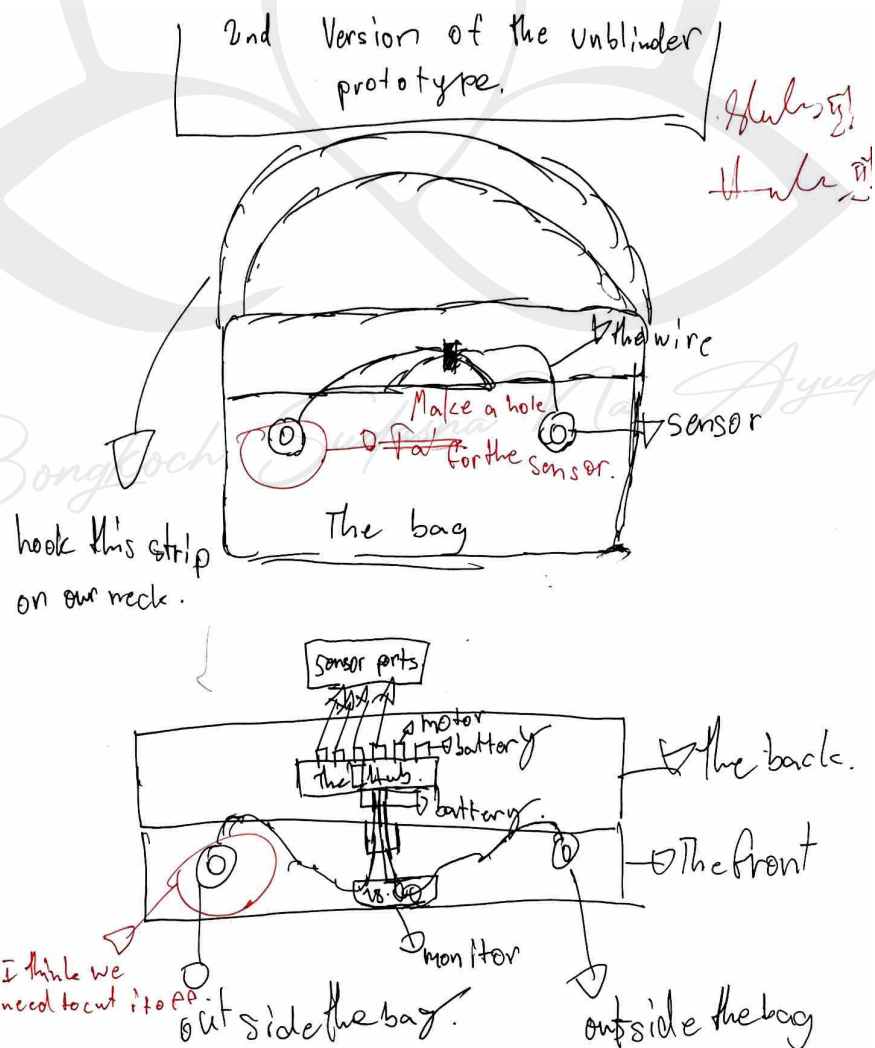 2nd Version of the unblinder
prototype.
the wire
Make a hole
for the sensor.
sensor
The bag
hook this strip
on our neck.
Sensor ports
motor
battery
The Hub.
battery.
the back.
The front
monitor
I think we
need to cut it off.
outside the bag.
outside the bag
Bongkoch Na Ayud